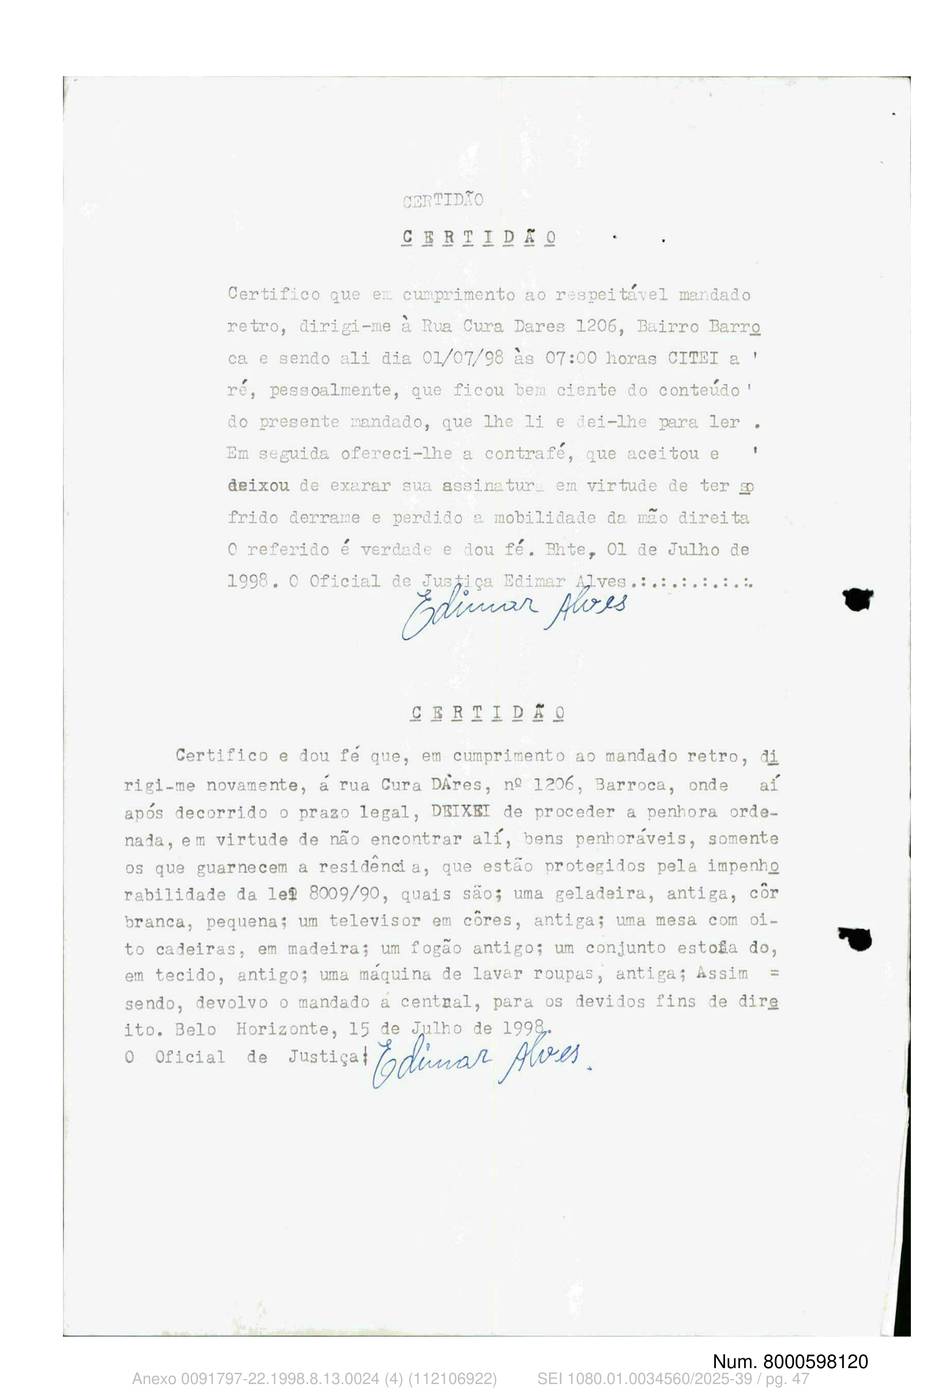 CERTIDÃO
C E R T I D Ã O
Certifico que em cumprimento ao respeitável mandado
retro, dirigi-me à Rua Cura Dares 1206, Bairro Barro
ca e sendo ali dia 01/07/98 às 07:00 horas CITEI a '
ré, pessoalmente, que ficou bem ciente do conteúdo '
do presente mandado, que lhe li e dei-lhe para ler .
Em seguida ofereci-lhe a contrafé, que aceitou e '
deixou de exarar sua assinatura em virtude de ter so
frido derrame e perdido a mobilidade da mão direita
O referido é verdade e dou fé. Bhte, 01 de Julho de
1998. O Oficial de Justiça Edimar Alves.:.:.:.:.:.:.
Edimar Alves
C E R T I D Ã O
Certifico e dou fé que, em cumprimento ao mandado retro, di
rigi-me novamente, á rua Cura DAres, nº 1206, Barroca, onde aí
após decorrido o prazo legal, DEIXEI de proceder a penhora orde-
nada, em virtude de não encontrar alí, bens penhoráveis, somente
os que guarnecem a residência, que estão protegidos pela impenho
rabilidade da lei 8009/90, quais são; uma geladeira, antiga, côr
branca, pequena; um televisor em côres, antiga; uma mesa com oi-
to cadeiras, em madeira; um fogão antigo; um conjunto estofa do,
em tecido, antigo; uma máquina de lavar roupas, antiga; Assim =
sendo, devolvo o mandado á central, para os devidos fins de dire
ito. Belo Horizonte, 15 de Julho de 1998.
O Oficial de Justiça:
Edimar Alves.
Num. 8000598120
Anexo 0091797-22.1998.8.13.0024 (4) (112106922) SEI 1080.01.0034560/2025-39 / pg. 47